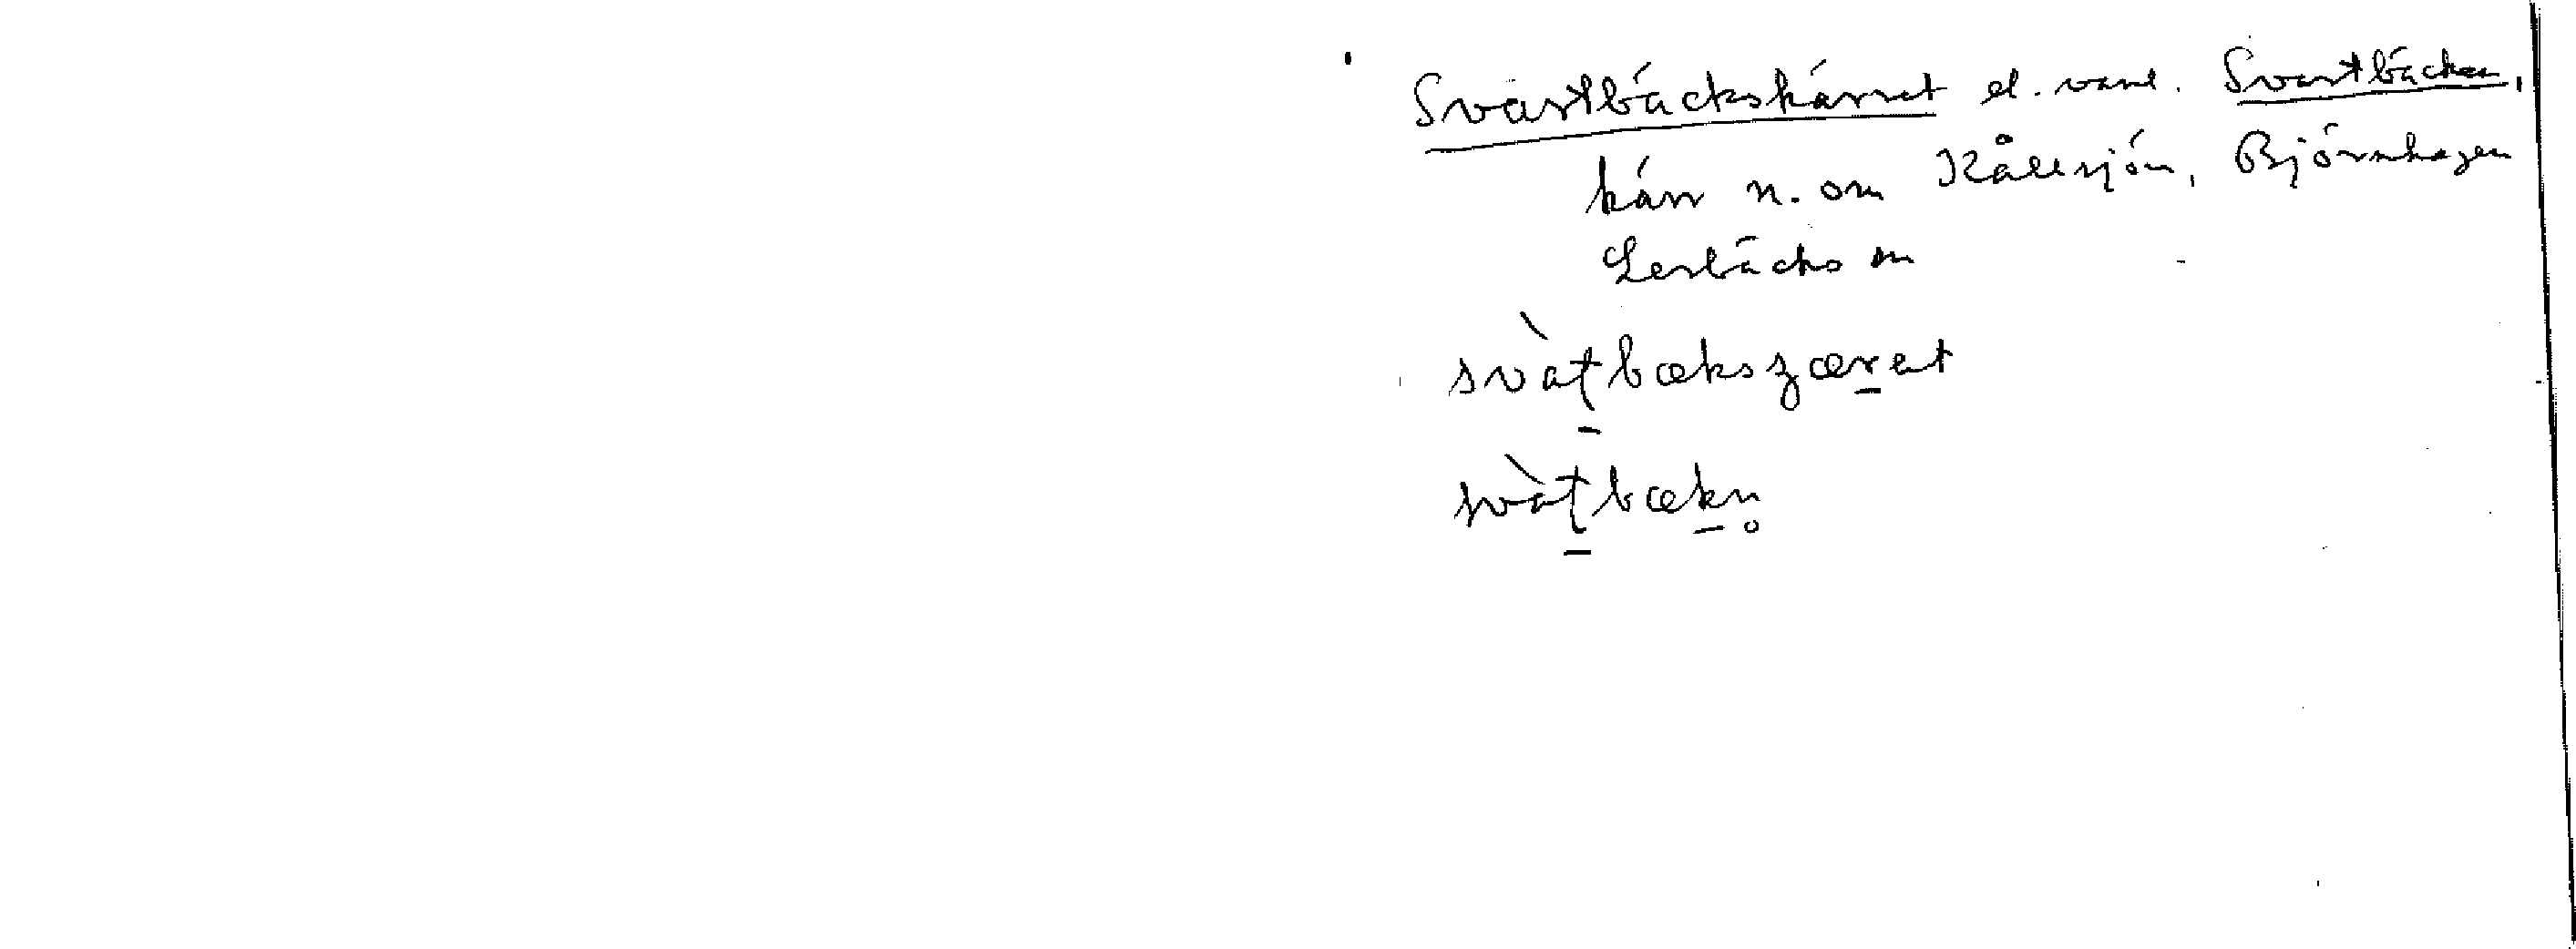 Svartbäckskärret el. vanl. Svartbäcken,
kärr n. om Kållsjön, Björnhagen
Lerbäcks sn
svàt̠bæksʒær̠et
svàt̠bæk̠n̥